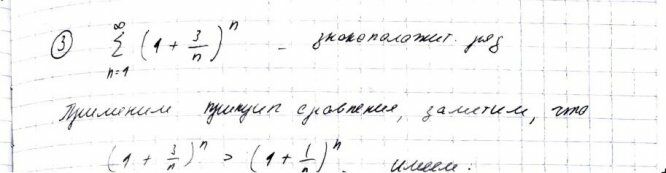 ③ ∞ ∑ n=1 (1 + 3/n)^n - знакоположит. ряд
Применим принцип сравнения, заметим, что
(1 + 3/n)^n > (1 + 1/n)^n. имеем: